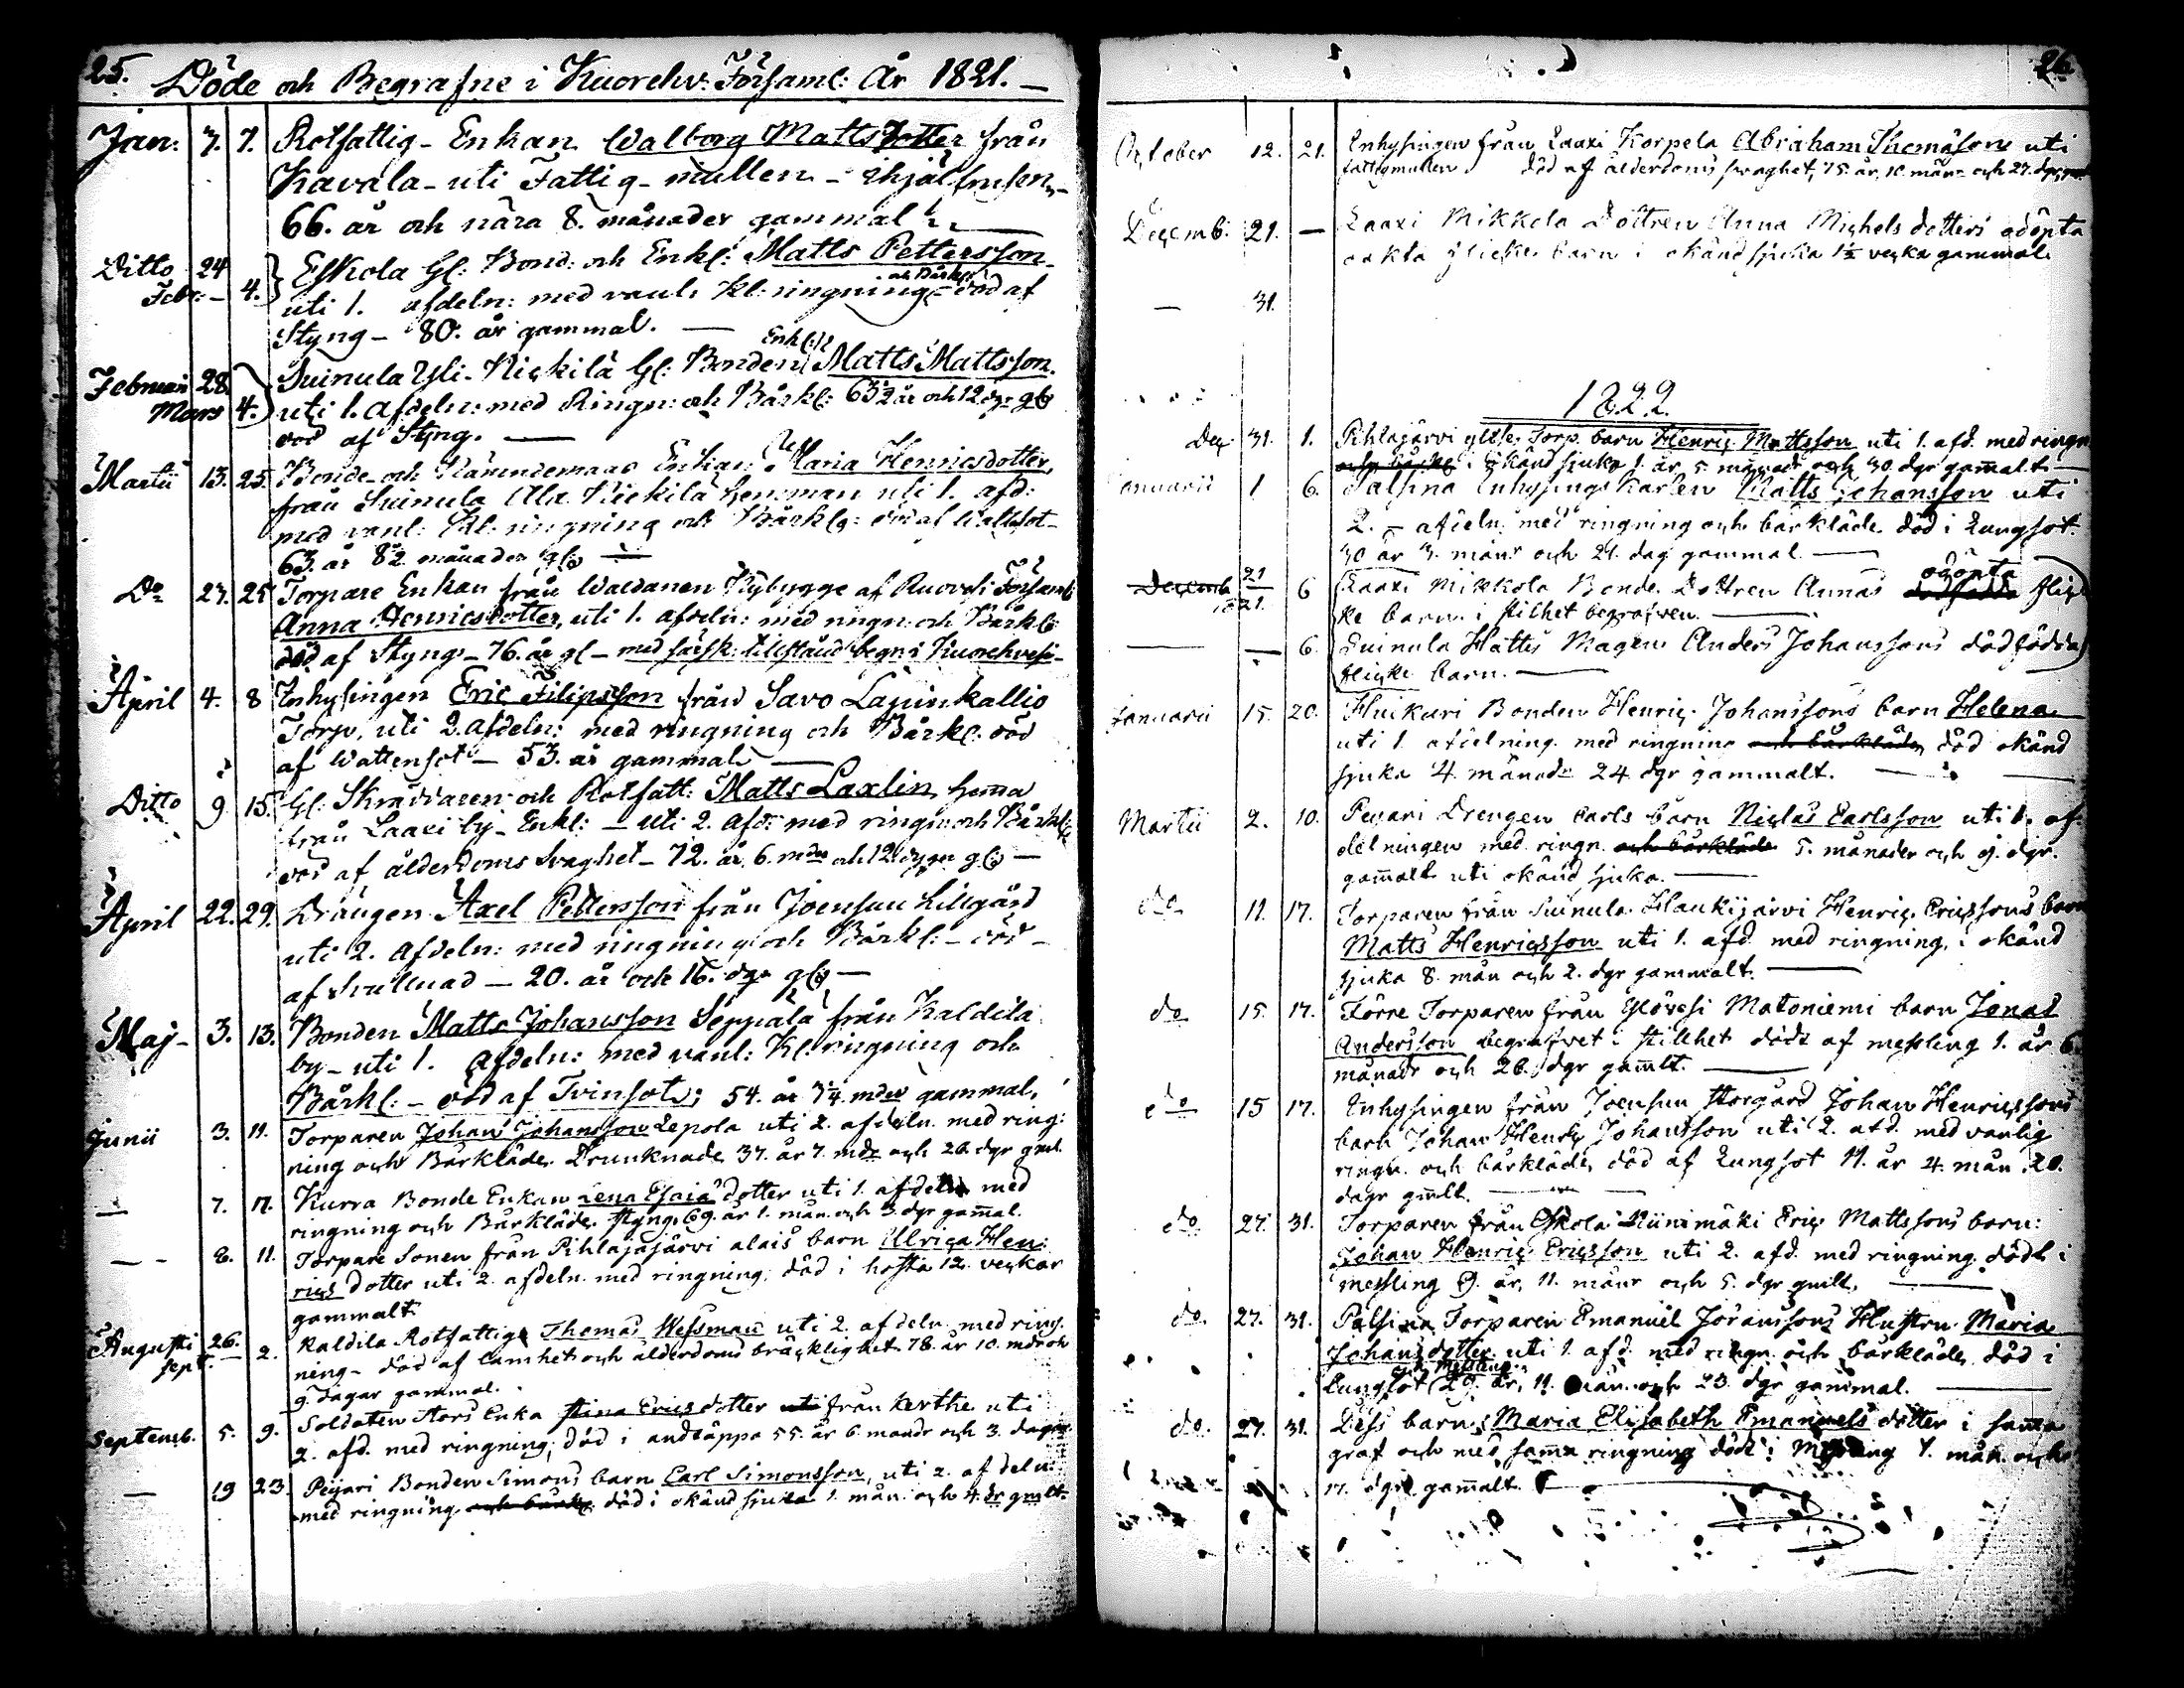 25.
Döde och Begrafne i Kuorehv: Församl: År 1821. —
Jan: 7. 7. Rotfattig- Enkan Walborg Mattsdotter från
Kavala - uti Fattig- mullen - ihjälfrusen -
66. år och nära 8. månader gammal
Ditto 24 Eskola Gl: Bond: och Enkl: Matts Pettersson
Febr: — 4. uti 1. afdeln: med vanl. Kl: ringning och Bårkl: död af
Styng - 80. år gammal. —
Februari 28. Suinula Yli- Nickilä Gl: Bonden Enkl: Matts Mattsson.
Mars 4. uti 1. Afdeln: med Ringn: och Bårkl: 63½ år och 12 dgr gl
död af Styng. —
Martii 13. 25. Bonde- och Nämndemans Enkan Maria Henricsdotter,
från Suinula Ala Nickilä hemman uti 1. afd:
med vanl: Kl: ringning och Bårkl: död af Wattusot -
63. år 8½ månader gl —
Do 27. 25 Torpare Enkan från Waldanen Nybygge af Ruovesi Församl:
Anna Henricsdotter, uti 1. afdeln: med ringn: och Bårkl:
död af Styng - 76. år gl - med särsk: tillstånd begr: i Kuorehvesi -
April 4. 8 Inhysingen Eric Filipsson från Savo Lapinkallio
Torp, uti 2. Afdeln: med ringning och Bårkl: död
af Wattensot - 53. år gammal —
Ditto 9. 15. Gl: Skräddaren och Rotfatt: Matts Laxlin, hema
från Laaxi by - Enkl: - uti 2. Afd: med ringn: och Bårkl:
död af ålderdoms svaghet - 72. år 6. mdr och 12 dygn gl —
April 22. 29. Drängen Axel Pettersson från Joensuu Lillgård
uti 2. Afdeln: med ringning och Bårkl: - död -
af Svullnad — 20. år och 16. dgr gl —
Maj - 3. 13. Bonden Matts Johansson Seppälä från Kaldila
by - uti 1. Afdeln: med vanl: Kl: ringning och
Bårkl: - död af Tvinsot; 54. år 3¼ mdr gammal,
Junii 3. 11. Torparen Johan Johansson Lepola uti 2. afdeln. med ring:
ning och Bårkläde. Drunknade 37. år 7. mdr och 26. dgr gml.
— 7. 17. Kurra Bonde Enkan Lena Esaiæ dotter uti 1. afdeln med
ringning och Bårkläde. styng, 69. år 1. mån. och 3 dgr gamal.
— 8. 11. Torpare Sonen från Pihlajajärvi alais barn Ulrica Hen:
rics dotter uti 2. afdeln. med ringning, död i hosta 12. veckor
gammalt
Augusti 26. Kaldila Rotfattige Thomas Wessman uti 2. afdeln. med ring.
Sept. — 2. ning - död af lamhet och ålderdoms bräcklighet 78. år 10. mdr och
9. dagar gammal.
Septemb. 5. 9. Soldaten Stors Enka Stina Ericsdotter från Kerthe uti
2. afd. med ringning, död i andtäppa 55. år 6 måndr och 3. dagar
— 19 23. Peijari Bonden Simons barn Carl Simonsson, uti 2. afdeln:
med ringning och bårkl död i okänd sjuka 1. mån. och 4. dr gmlt.
26
October 12. 21. Inhysingen från Laaxi Korpela Abraham Thomasson uti
fattigmullen död af ålderdoms svaghet, 75. år, 10. mån och 27. dgr
Decemb. 21. — Laaxi Mikkola Dottren Anna Michels dotters odöpta
oäkta flicke barn i okänd sjuka 1½ vecka gammal.
— 31.
1822.
Dec 31. 1. Pihlajärvi Torp. barn Henric Mattsson uti 1. afd. med ringn
i okänd sjuka 1. år 5. månadr och 30. dgr gamalt. —
Januarii 1 6. Palsina Inhysings Karlen Matts Johansson uti
2. - afdeln. med ringning och bårkläde. död i Lungsot
30 år 3. månr och 21. dag gammal. —
Decemb 21 1821. 6 Laaxi Mikkola Bonde Dottren Annas odöpta dödfödda flic
ke barn i stilhet begrafven. —
— — 6. Suinula Hattu Magen Anders Johanssons dödfödda
flicke barn. —
Januarii 15. 20. Huikari Bonden Henric Johanssons barn Helena
uti 1. afdelning. med ringning och bårkläde, död okänd
sjuka 4. månadr 24. dgr gammalt. —
Martii 2. 10. Peijari Drengen Carls barn Niclas Carlsson uti 1. af
delningen med ringn. och bårkläde 5. månader och 9. dgr.
gamalt uti okänd sjuka. —
do 11. 17. Torparen från Suinula Haukijärvi Henric Ericssons barn
Matts Henricsson uti 1. afd. med ringning, i okänd
sjuka 8. mån och 2. dgr gammalt. —
do 15. 17. Förre Torparen från Ylövesi Matoniemi barn Jonas
Andersson begrafvet i stillhet dödt af messling 1. år 6.
månadr och 26. dgr gamlt. —
do 15 17. Inhysingen från Joensuu Storgård Johan Henricssons
barn Johan Henric Johansson uti 2. afd. med vanlig
ringn. och bårkläde, död af Lungsot 11. år 4. mån 20.
dagr gmlt. —
do. 27. 31. Torparen från Eskola Niinimäki Eric Mattssons barn:
Johan Henric Ericsson uti 2. afd. med ringning. dödt i
messling 9. år, 11. månr och 5. dgr gmlt. —
do. 27. 31. Palsina Torparen Emanuel Göranssons Hustru Maria
Johansdotter. uti 1. afd. med ringn. och bårkläde, död i
Lungsot och Messling 29. år, 11. mån. och 23. dgr gammal. —
do. 27. 31. Dess barn, Maria Elisabeth Emanuels dotter i sama
graf och med sama ringning dödt i Messling 7. mån. och
17. dgr gamalt.